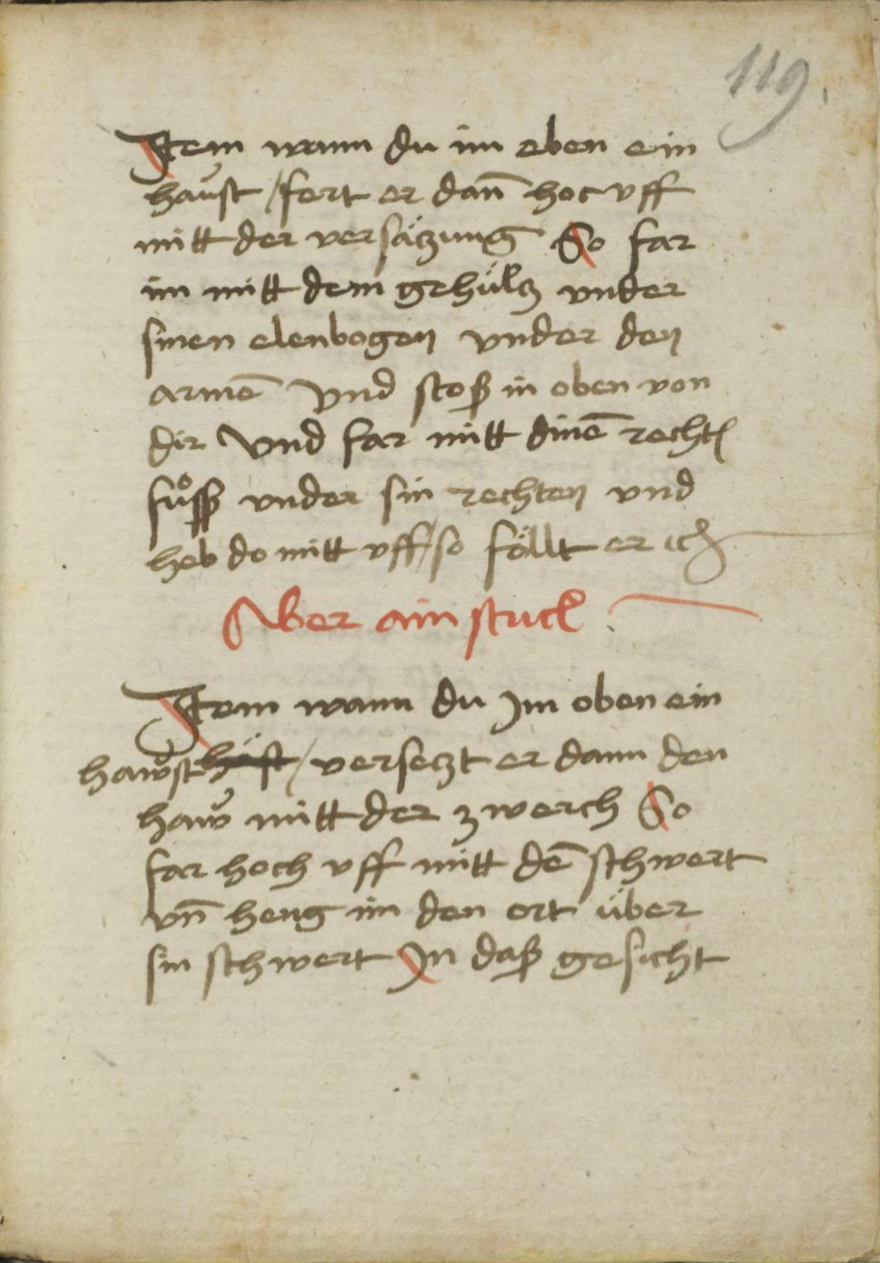 119
Item wann du im eben ein
haust / fert er dan̄ hoc vff
mitt der versäczung So far
im mitt dem gehülcz vnder
sinen elenbogen vnder den
armē vnd stoß in oben von
dir Vnd far mitt dinē rechtē
fůsß vnder sin rechten vnd
heb do mitt vff / so föllt er ich
Aber ain stuck
Item wann du Jm oben ein
hawst / verseczt er dann den
haw mitt der zwerch So
far hoch vff mitt dē schwert
vn̄ heng im den ort über
sin schwert Jn daß gesicht